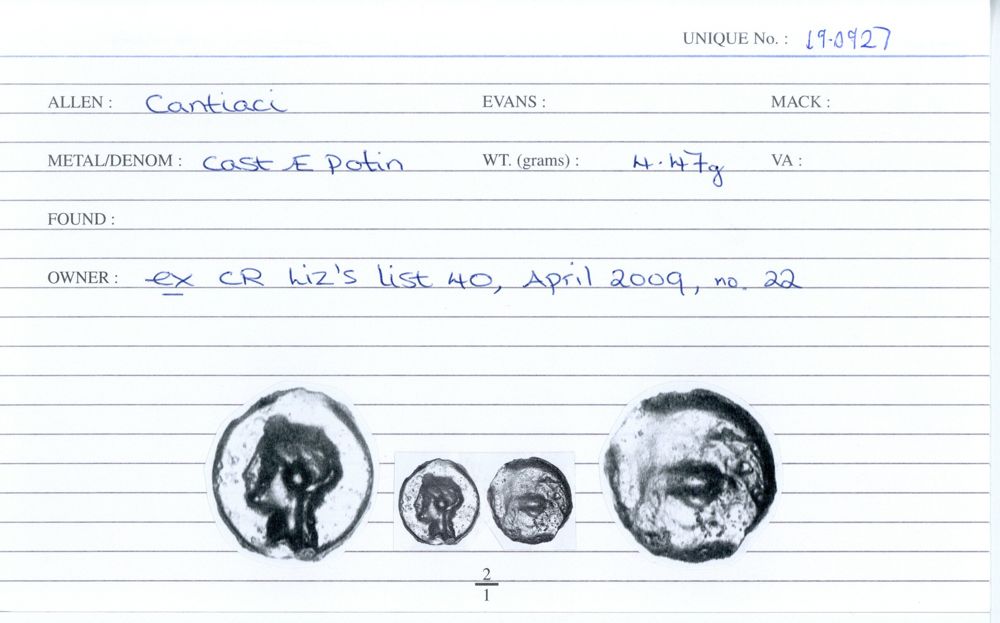 UNIQUE No. : 19.0927
ALLEN : Cantiaci EVANS : MACK :
METAL/DENOM : Cast Æ Potin WT. (grams) : 4.47g VA :
FOUND :
OWNER : ex CR Liz's list 40, April 2009, no. 22
2
1